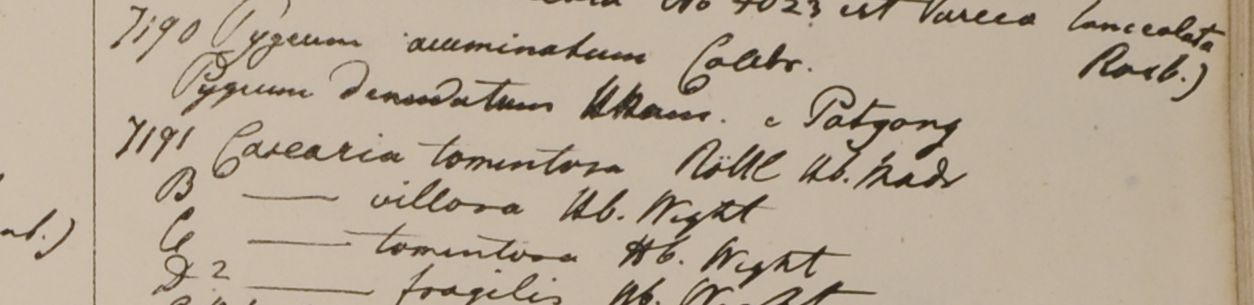 No 4023 est Vareca lanceolata
Roxb.)
7190 Pygeum acuminatum Colebr.
Pygeum denudatum HHam. e Patgong
7191 Casearia tomentosa Röttl Hb. Madr
B —— villosa Hb. Wight
C —— tomentosa Hb. Wight
D2 —— fragilis Hb. Wight